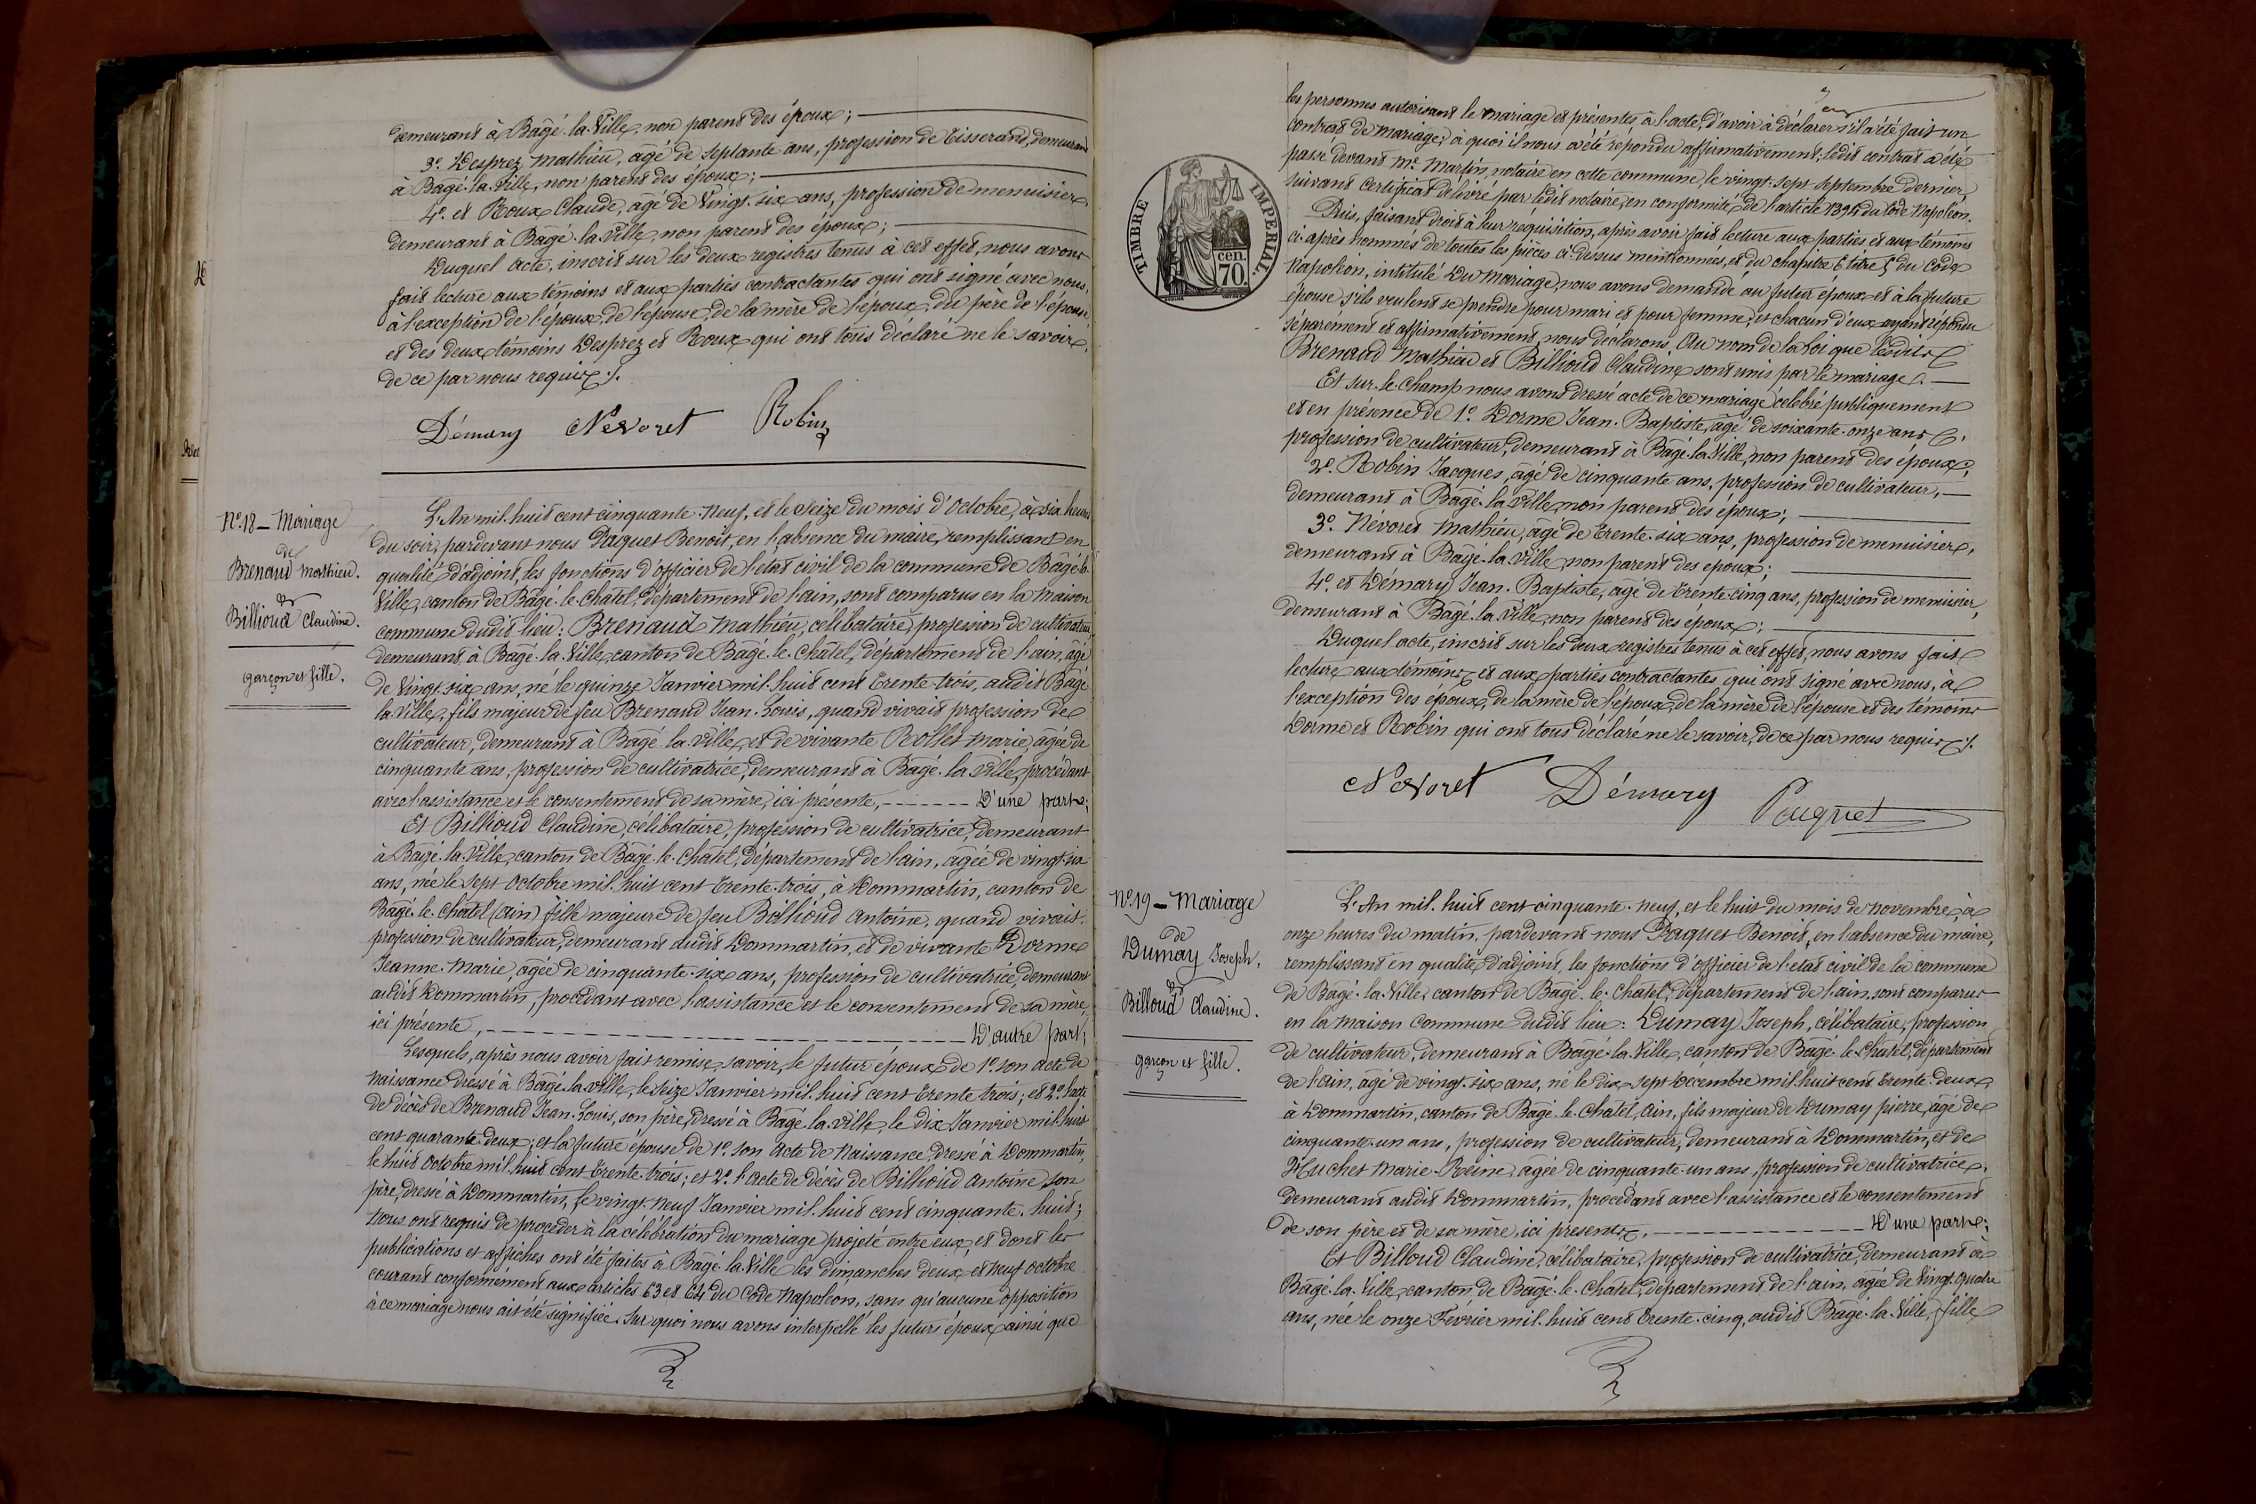 demeurant à Bâgé-la-Ville, non parent des époux;
3º. Desprez Mathieu, âgé de septante ans, profession de Tisserand, demeurant
à Bâgé-la-Ville, non parent des époux;
4º. et Roux Claude, âgé de Vingt-six ans, profession de menuisier,
demeurant à Bâgé-la-Ville, non parent des époux;
Duquel acte, inscrit sur les deux registres tenus à cet effet, nous avons
fait lecture aux témoins et aux parties contractantes qui ont signé avec nous,
à l'exception de l'époux, de l'épouse, de la mère de l'époux, du père de l'épouse
et des deux témoins Desprez et Roux qui ont tous déclaré ne le savoir,
de ce par nous requis ./.
Démary Nevoret Robin
Nº. 18 — Mariage
de
Brenaud Mathieu.
&
Billioud Claudine.
garçon et fille.
L'An mil-huit cent cinquante-neuf, et le seize du mois d'Octobre, à six heures
du soir, pardevant nous Paquet Benoit, en l'absence du maire, remplissant en
qualité d'adjoint, les fonctions d'officier de l'état civil de la commune de Bâgé-la-
Ville, canton de Bâgé-le-Châtel, département de l'ain, sont comparus en la maison
commune dudit lieu: Brenaud Mathieu, célibataire, profession de cultivateur,
demeurant à Bâgé-la-Ville, canton de Bâgé-le-Châtel, département de l'ain, âgé
de Vingt-six ans, né le quinze Janvier mil-huit cent trente-trois, audit Bâgé
la-Ville, fils majeur de feu Brenaud Jean-Louis, quand vivait profession de
cultivateur, demeurant à Bâgé-la-Ville, et de vivante Rollet Marie, âgée de
cinquante ans, profession de cultivatrice, demeurant à Bâgé-la-Ville, procédant
avec l'assistance et le consentement de sa mère, ici présente, D'une part;
Et Billioud Claudine, célibataire, profession de cultivatrice, demeurant
à Bâgé-la-Ville, canton de Bâgé-le-Châtel, département de l'ain, âgée de vingt-six
ans, née le sept Octobre mil-huit cent trente-trois, à Dommartin, canton de
Bâgé-le-Châtel (ain) fille majeure de feu Billioud Antoine, quand vivait
profession de cultivateur, demeurant audit Dommartin, et de vivante Dorme
Jeanne-Marie, âgée de cinquante-six ans, profession de cultivatrice, demeurant
audit Dommartin, procédant avec l'assistance et le consentement de sa mère,
ici présente, D'autre part;
Lesquels, après nous avoir fait remise, savoir, le futur époux, de 1º. son acte de
naissance dressé à Bâgé-la-Ville, le seize Janvier mil-huit cent trente-trois; et 2º. l'acte
de décès de Brenaud Jean-Louis, son père, dressé à Bâgé-la-Ville, le dix Janvier mil-huit
cent quarante-deux; et la future épouse de 1º. son acte de naissance, dressé à Dommartin,
le huit octobre mil-huit cent trente-trois; et 2º. l'acte de décès de Billioud Antoine son
père, dressé à Dommartin, le vingt-neuf Janvier mil-huit cent cinquante-huit;
Nous ont requis de procéder à la célébration du mariage projeté entre eux, et dont les
publications et affiches ont été faites à Bâgé-la-Ville les dimanches deux et neuf octobre
courant conformément aux articles 63 et 64 du Code Napoléon, sans qu'aucune opposition
à ce mariage nous ait été signifiée. Sur quoi nous avons interpellé les futurs époux ainsi que
TIMBRE IMPÉRIAL.
cen. 70.
les personnes autorisant le mariage et présentes à l'acte, d'avoir à déclarer s'il a été fait un
contrat de mariage, à quoi il nous a été répondu affirmativement; ledit contrat a été
passé devant Me. Martin, notaire en cette commune, le vingt-sept septembre dernier,
suivant certificat délivré par ledit notaire, en conformité de l'article 1394 du Code Napoléon.
Puis, faisant droit à leur réquisition, après avoir fait lecture aux parties et aux témoins
ci-après nommés de toutes les pièces ci-dessus mentionnées, et du chapitre 6 titre 5 du code
Napoléon, intitulé Du mariage, nous avons demandé au futur époux et à la future
épouse s'ils veulent se prendre pour mari et pour femme, et chacun d'eux ayant répondu
séparément et affirmativement, nous déclarons Au nom de la Loi que lesdits
Brenaud Mathieu et Billioud Claudine sont unis par le mariage.
Et sur-le-champ nous avons dressé acte de ce mariage célébré publiquement
et en présence de 1º. Dorme Jean-Baptiste, âgé de soixante-onze ans,
profession de cultivateur, demeurant à Bâgé-la-Ville, non parent des époux;
2º. Robin Jacques, âgé de cinquante ans, profession de cultivateur,
demeurant à Bâgé-la-Ville non parent des époux;
3º. Névoret Mathieu, âgé de trente-six ans, profession de menuisier,
demeurant à Bâgé-la-Ville, non parent des époux;
4º. et Démary Jean-Baptiste, âgé de trente-cinq ans, profession de menuisier,
demeurant à Bâgé-la-Ville, non parent des époux;
Duquel acte, inscrit sur les deux registres tenus à cet effet, nous avons fait
lecture aux témoins et aux parties contractantes qui ont signé avec nous, à
l'exception des époux, de la mère de l'époux, de la mère de l'épouse et des témoins
Dorme et Robin qui ont tous déclaré ne le savoir, de ce par nous requis ./.
Nevoret Démary Paquet
Nº. 19 — Mariage
de
Dumay Joseph,
&
Billoud Claudine.
garçon et fille.
L'An mil-huit cent cinquante-neuf, et le huit du mois de novembre, à
onze heures du matin, pardevant nous Paquet Benoit, en l'absence du maire,
remplissant en qualité d'adjoint, les fonctions d'officier de l'état civil de la commune
de Bâgé-la-Ville, canton de Bâgé-le-Châtel, département de l'ain, sont comparus
en la maison commune dudit lieu: Dumay Joseph, célibataire, profession
de cultivateur, demeurant à Bâgé-la-Ville, canton de Bâgé-le-Châtel, département
de l'ain, âgé de vingt-six ans, né le dix-sept Décembre mil huit cent trente-deux,
à Dommartin, canton de Bâgé-le-Châtel, ain, fils majeur de Dumay pierre, âgé de
cinquante-un ans, profession de cultivateur, demeurant à Dommartin, et de
Huchet Marie-Reine, âgée de cinquante-un ans, profession de cultivatrice,
demeurant audit Dommartin, procédant avec l'assistance et le consentement
de son père et de sa mère, ici présents, D'une part;
Et Billoud Claudine, célibataire, profession de cultivatrice, demeurant à
Bâgé-la-Ville, canton de Bâgé-le-Châtel, département de l'ain, âgée de vingt-quatre
ans, née le onze Février mil-huit cent trente-cinq, audit Bâgé-la-Ville, fille